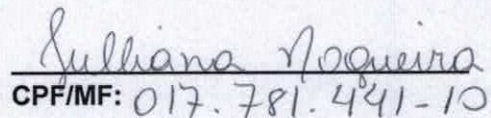 Julliana Nogueira
CPF/MF: 017.781.441-10